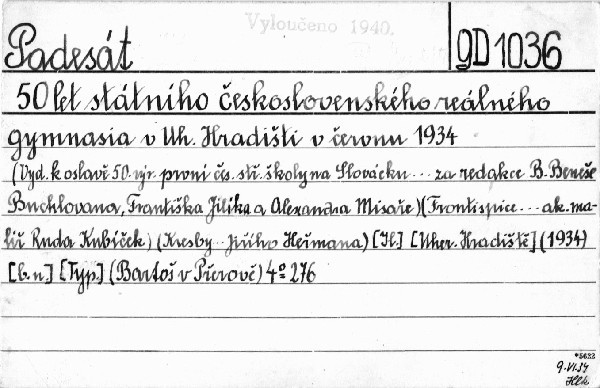 Vyloučeno 1940.
Padesát
9D1036
50 let státního československého reálného
gymnasia v Uh. Hradišti v červnu 1934
(Vyd. k oslavě 50. výr. první čes. stř. školy na Slovácku... za redakce B. Beneše
Buchlovana, Františka Jilíka a Alexandra Misaře) (Frontispice... ak. ma-
líř Ruda Kubíček) (Kresby... Jiřího Heřmana) [Il.] [Uher. Hradiště] (1934)
[b.n.] [Typ.] (Bartoš v Přerově) 4° 276
*5622
9.VI.34